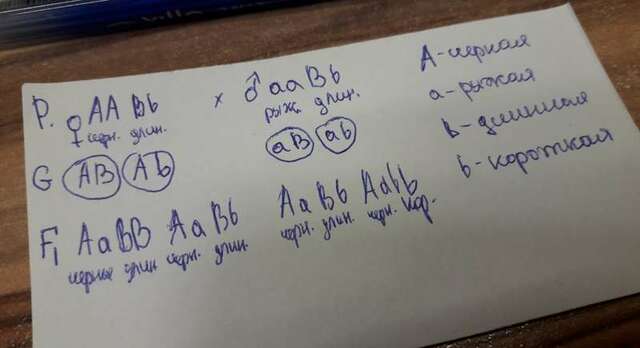 P. ♀ AA Bb × ♂ aa Bb
черн. длин. рыж. длин.
G AB Ab aB ab
F₁ AaBB AaBb AaBb Aabb
черные длин черн. длин. черн. длин. черн. кор.
A - черная
a - рыжая
B - длинная
b - короткая